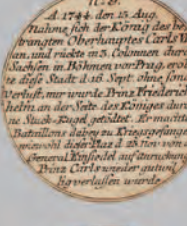 A. 1744. den 15. Aug.
nahme sich der König des be-
trangten Oberhauptes Carls V
an, und rückte in 3. Colūmnen durch
Sachsen in Böhmen vor Prag, ero
te diese Stadt d. 16. Sept. ohne son
verlust, nur wurde Prinz Friederich
helm an der Seite des Königes durch
ne Stuck-Kugel getödtet. Er machte
Bataillons dabey zu Kriegsgefang
wiewohl dieser Plaz d. 25. Nov. von
General Einsiedel auf anruckung
Prinz Carls wieder gutwil
lig verlassen wurde